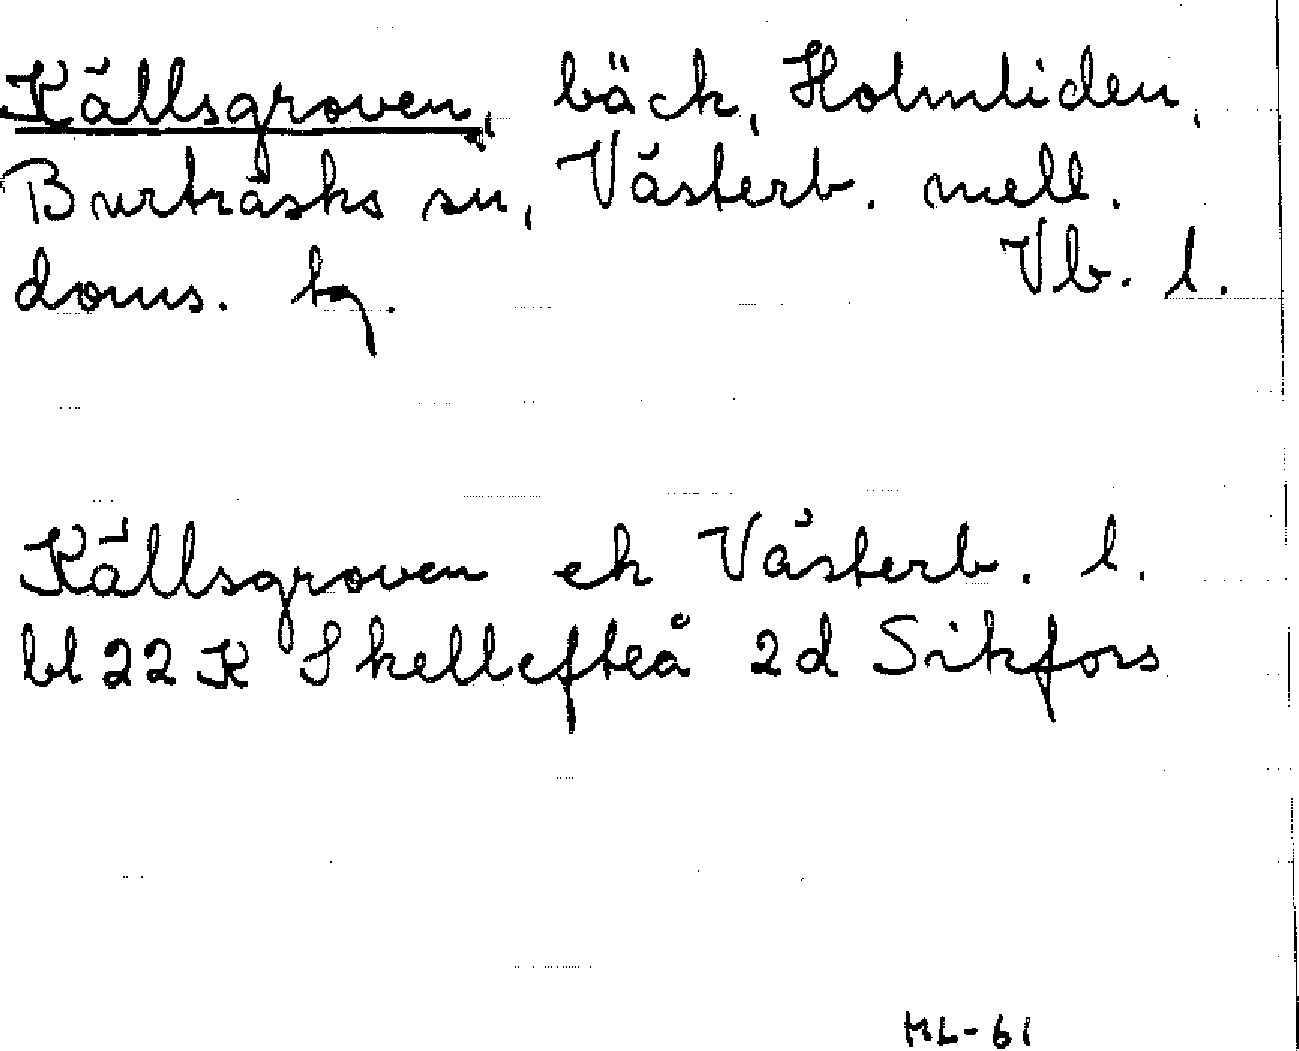 Källsgroven, bäck, Holmliden,
Burträsks sn, Västerb. mell.
doms. tg. Vb. l.
Källsgroven ek Västerb. l.
bl 22 K Skellefteå 2d Sikfors
ML-61